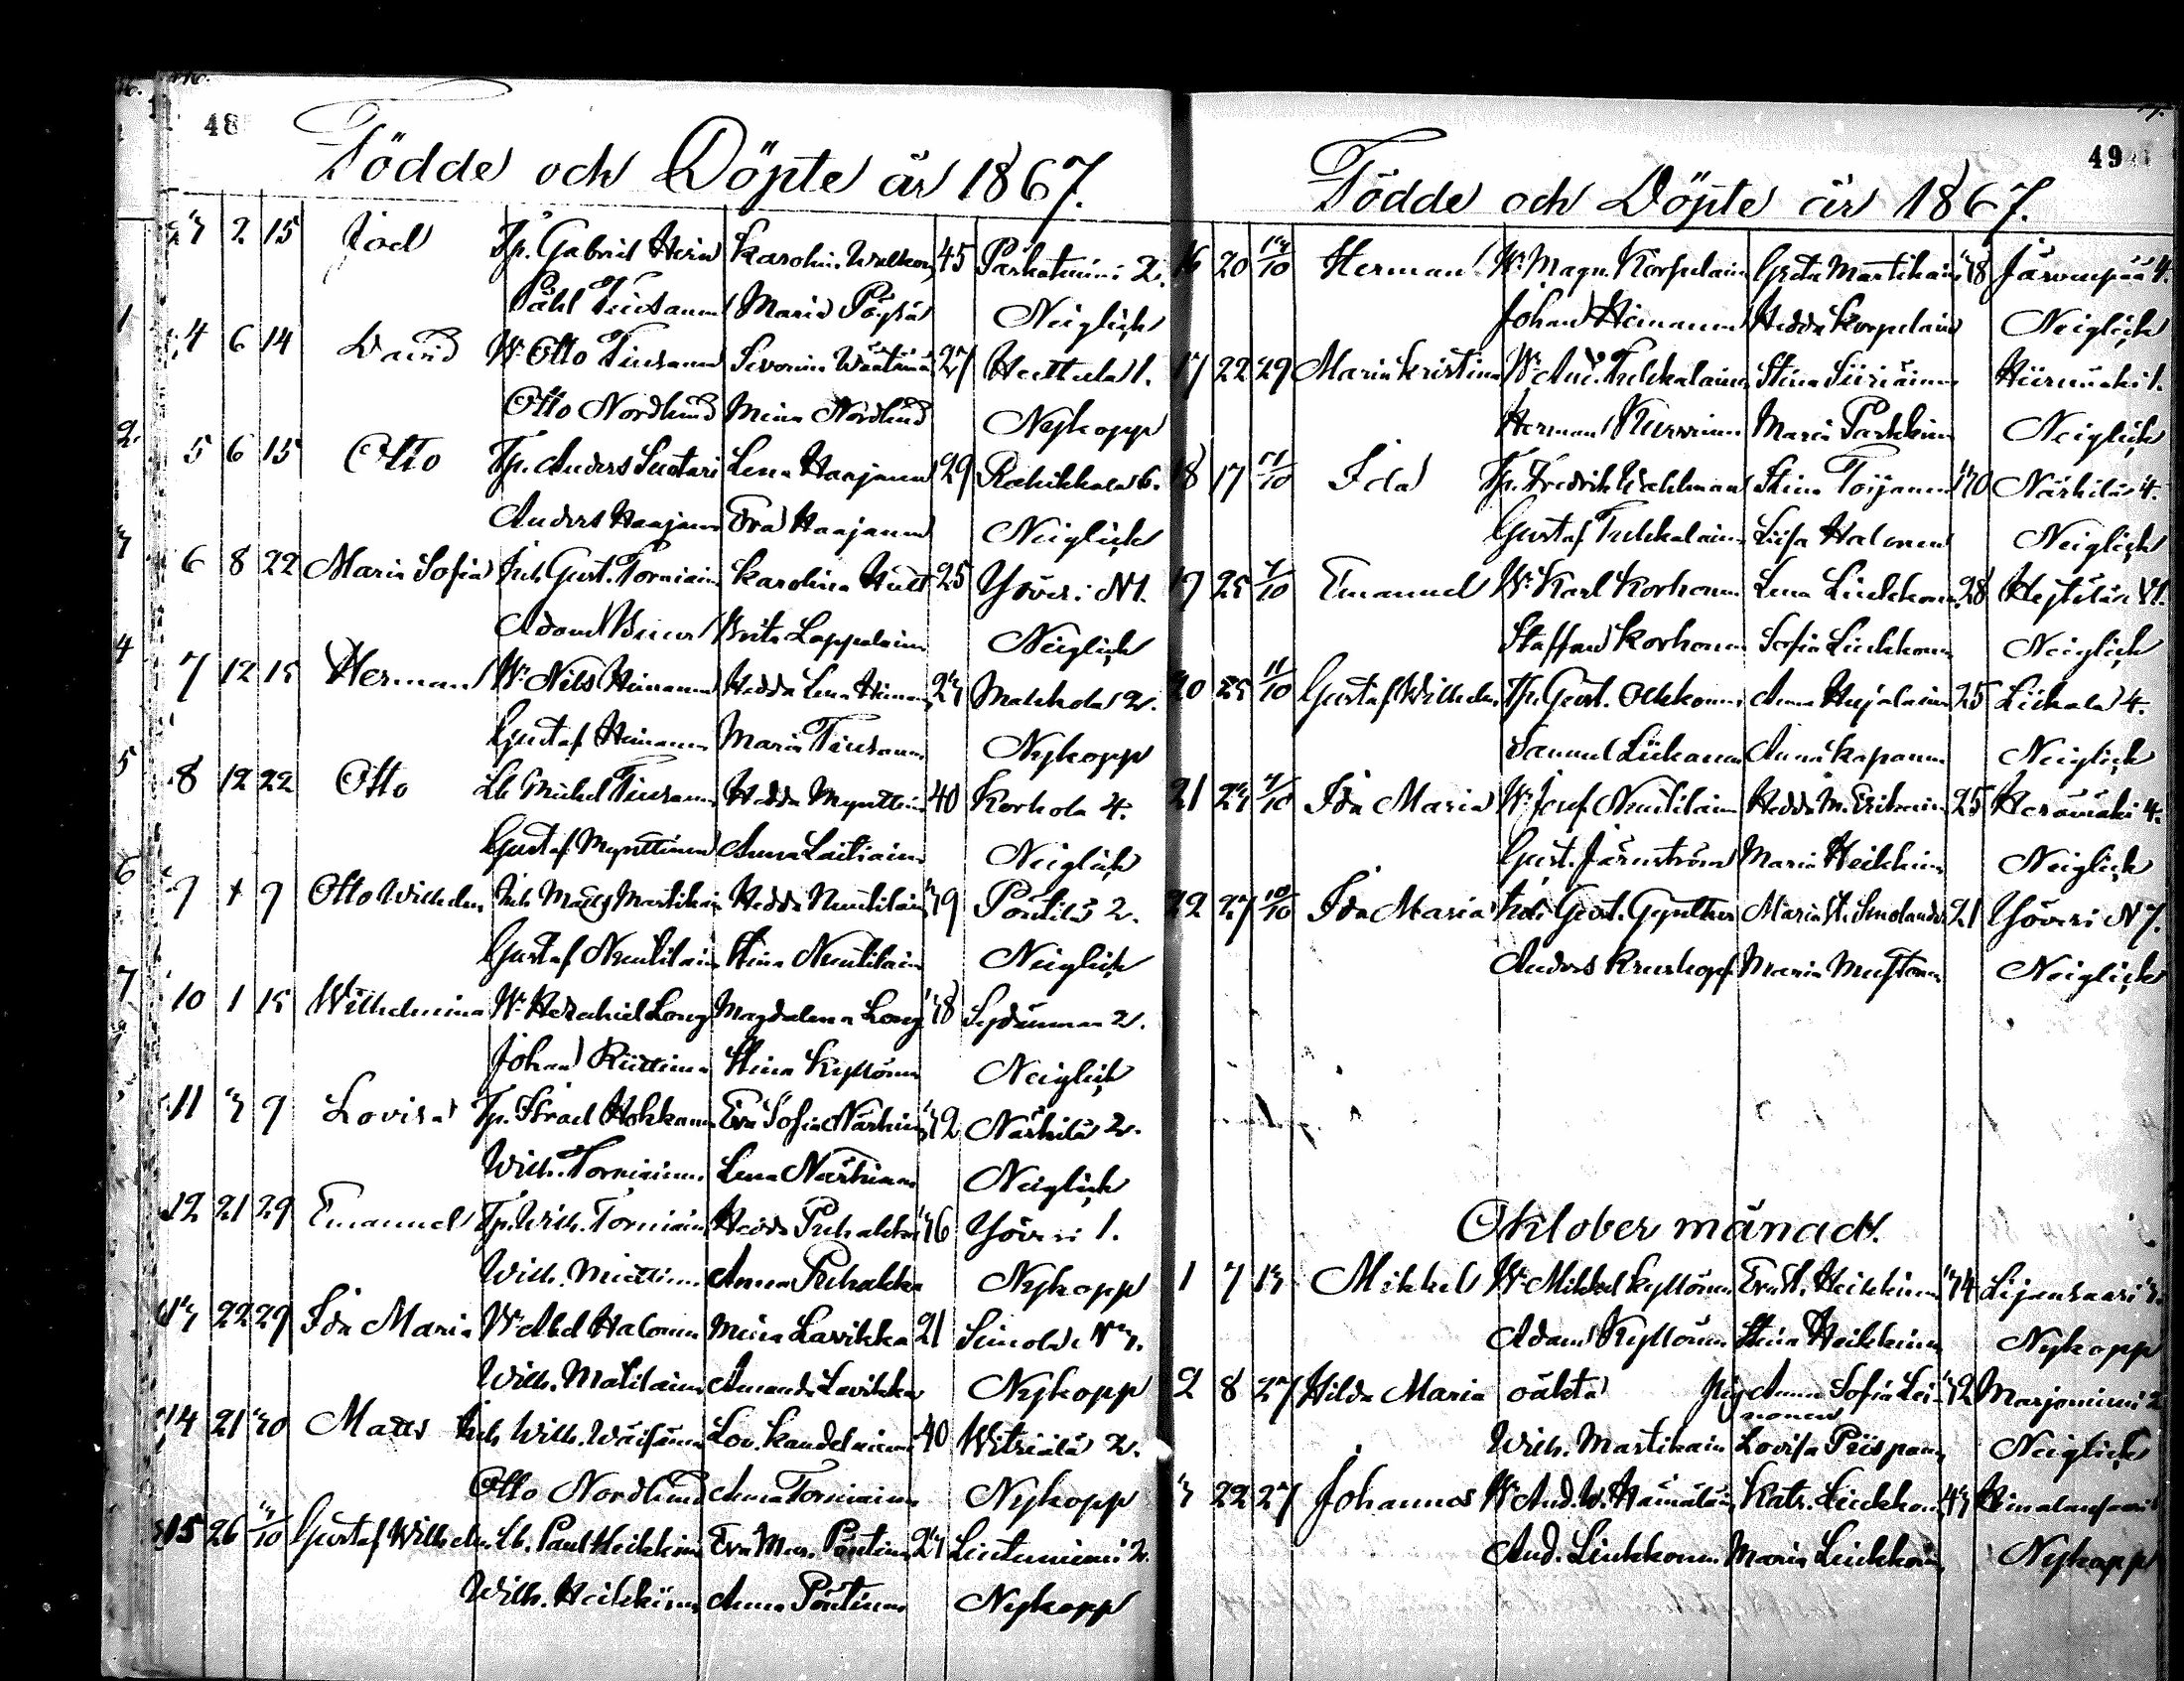 48
Födde och Döpte år 1867.
3 2 15 Joel Tp. Gabriel Hein Karolin. Walkon. 45 Parkatniemi 2.
Påhl Tiusanen Maria Pöyhiä Neiglick
4 6 14 David W. Otto Tiusanen Severina Wäätäinen 27 Huttula 1.
Otto Nordlund Mina Nordlund Nykopp
5 6 15 Otto Tp. Anders Suutari Lena Haajanen 29 Rahikkala 6.
Anders Haajanen Eva Haajanen Neiglick
6 8 22 Maria Sofia Inh. Gust. Torniain. Karolina Hult 25 Yöveri N 1.
Adam Brita Lappalain. Neiglick
7 12 15 Herman W. Nils Heimonen Hedda Lena Heimon. 23 Makkola 2.
Gustaf Heimonen Maria Tiusanen Nykopp
8 12 22 Otto Lb. Mickel Tiusanen Hedda Mynttinen 40 Korhola 4.
Gustaf Mynttinen Anna Laitiainen Neiglick
9 9 Otto Wilhelm Inh. Matts Martikain Hedda Nuutilain 39 Pöntilä 2.
Gustaf Nuutilain Stina Nuutilain Neiglick
10 1 15 Wilhelmina W. Hezechiel Long Magdalena Long 38 Sydänmaa 2.
Johan Stina Kyllönen Neiglick
11 3 9 Lovisa Tp. Israel Hokkanen Eva Sofia Närhinen 32 Närhilä 2.
Wilh. Torniainen Lena Närhinen Neiglick
12 21 29 Emanuel Tp. Wilh. Torniain. Hedda Puhakka 36 Yöveri 1.
Wilh. Miettinen Anna Puhakka Nykopp
13 22 29 Ida Maria W. Abel Halonen Mina Lavikka 21 Simola N 3.
Wilh. Matilainen Amanda Lavikka Nykopp
14 21 30 Matts Inh. Wilh. Wäisänen Lov. Kandelainen 40 Witriälä 2.
Otto Nordlund Anna Torniainen Nykopp
15 26 3/10 Gustaf Wilhelm Lb. Paul Heikkinen Eva Mar. Pöntinen 23 Lintuniemi 2.
Wilh. Heikkinen Anna Pöntinen Nykopp
49
Födde och Döpte år 1867.
16 20 13/10 Herman W. Magn. Korpelain Greta Martikain 38 Järvenpää 4.
Johan Heimonen Hedda Korpelain Neiglick
17 22 29 Maria Kristina W. And. Tukkalainen Stina Siiriäinen Hiirimäki 1.
Herman Kurvinen Maria Parkkinen Neiglick
18 17 /10 Ida Tp. Fredrik Wahlman Stina Toijanen 30 Närhilä 4.
Gustaf Tukkalainen Lisa Halonen Neiglick
19 25 /10 Emanuel W. Karl Korhonen Lena Liukkonen 28
Staffan Korhonen Sofia Liukkonen Neiglick
20 25 11/10 Gustaf Wilhelm Tp. Gust. Olkkonen Anna Hujalainen 25 Liikala 4.
Samuel Liikanen Anna Kapanen Neiglick
21 23 /10 Ida Maria W. Josef Nuutilain Hedda M. 25 4.
Gust. Järnström Maria Heikkinen Neiglick
22 27 10/10 Ida Maria Gust. Gynther Maria St. Smolander 21 Yöveri N 7.
Anders Krushopf Maria Mustonen Neiglick
Oktober månad.
1 7 13 Mikkel W. Mikkel Kyllönen Eva St. Heikkinen 34 Lijansaari 3.
Adam Kyllönen Stina Heikkinen Nykopp
2 8 27 Hilda Maria oäkta Pig. Anna Sofia Lei- 32 Marjoniemi 2
nonen
Wilh. Martikain Lovisa Piispanen Neiglick
3 22 27 Johannes W. And. W. Hämäläin Katr. Liukkon. 43 Himalansaari
And. Liukkonen Maria Liukkonen Nykopp